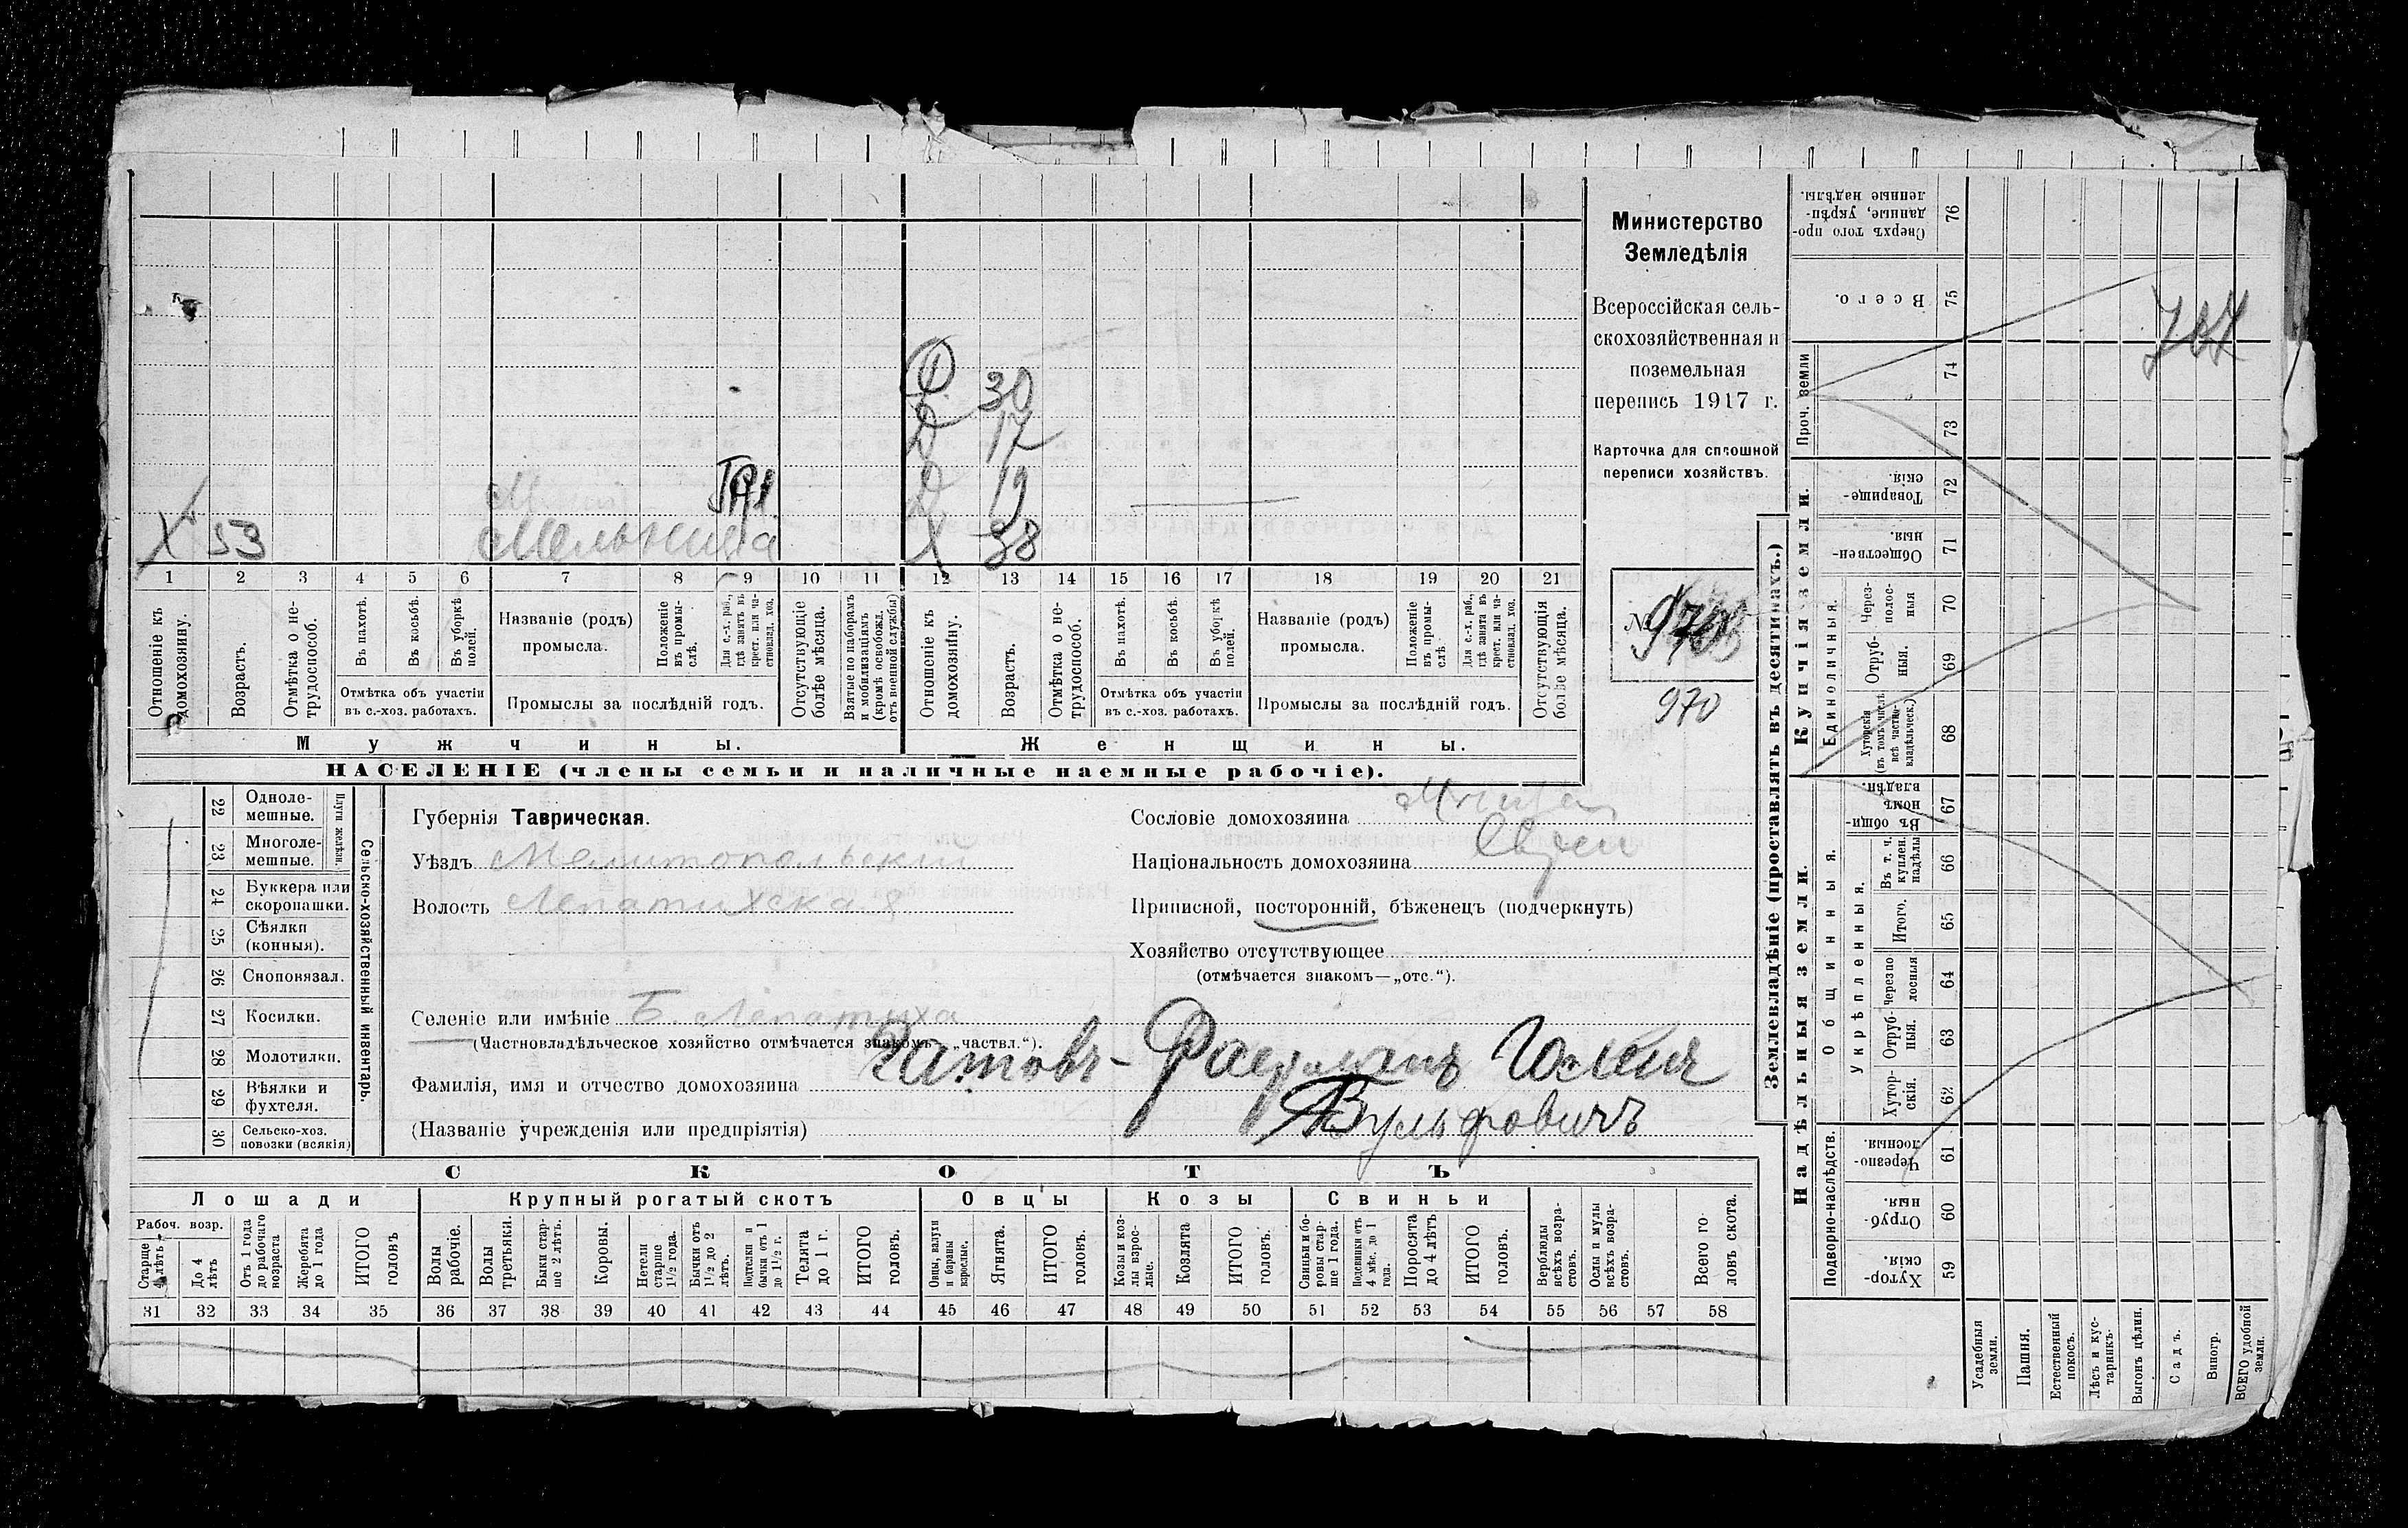 Министерство
Земледѣлія
Всероссійская сель-
скохозяйственная и
поземельная
перепись 1917 г.
Карточка для сплошной
переписи хозяйствъ.
№
970
707
Ф 30
Д 17
Д 19
Х 53 Мельница Х 38
1 2 3 4 5 6 7 8 9 10 11 12 13 14 15 16 17 18 19 20 21
Отношеніе къ домохозяину.
Возрастъ.
Отмѣтка о не-трудоспособ.
Въ пахотѣ.
Въ косьбѣ.
Въ уборкѣ полей.
Отмѣтка объ участіи въ с.-хоз. работахъ.
Названіе (родъ) промысла.
Положеніе въ промы-слѣ.
Для с.-х. раб., гдѣ занятъ въ крест. или ча-стновлад. хоз.
Промыслы за послѣдній годъ.
Отсутствующіе болѣе мѣсяца.
Взятые по наборамъ и мобилизаціямъ (кромѣ освобожд. отъ военной службы)
Отношеніе къ домохозяину.
Возрастъ.
Отмѣтка о не-трудоспособ.
Въ пахотѣ.
Въ косьбѣ.
Въ уборкѣ полей.
Отмѣтка объ участіи въ с.-хоз. работахъ.
Названіе (родъ) промысла.
Положеніе въ промы-слѣ.
Для с.-х. раб., гдѣ занята въ крест. или ча-стновлад. хоз.
Промыслы за послѣдній годъ.
Отсутствующія болѣе мѣсяца.
Мужчины.
Женщины.
НАСЕЛЕНІЕ (члены семьи и наличные наемные рабочіе).
Сельско-хозяйственный инвентарь.
Плуги желѣзн.
22 Одноле-мешные.
23 Многоле-мешные.
24 Буккера или скоропашки.
25 Сѣялки (конныя).
26 Сноповязал.
27 Косилки.
28 Молотилки.
29 Вѣялки и фухтеля.
30 Сельско-хоз. повозки (всякія)
Губернія Таврическая.
Уѣздъ Мелитопольскій
Волость Лепатихская
Селеніе или имѣніе Б. Лепатиха
(Частновладѣльческое хозяйство отмѣчается знакомъ „частвл.“).
Фамилія, имя и отчество домохозяина
Вульфовичъ
(Названіе учрежденія или предпріятія)
Сословіе домохозяина
Національность домохозяина Еврей
Приписной, посторонній, бѣженецъ (подчеркнуть)
Хозяйство отсутствующее
(отмѣчается знакомъ—„отс.“).
СКОТЪ
Лошади
Крупный рогатый скотъ
Овцы
Козы
Свиньи
Рабоч. возр.
Старше 4 лѣтъ
До 4 лѣтъ
Отъ 1 года до рабочаго возраста
Жеребята до 1 года
ИТОГО головъ
Волы рабочіе.
Волы третьяки.
Быки стар-ше 2 лѣтъ.
Коровы.
Нетели старше 1½ года.
Бычки отъ 1½ до 2 лѣтъ.
Подтелки и бычки отъ 1 до 1½ г.
Телята до 1 г.
ИТОГО головъ.
Овцы, валухи и бараны взрослые.
Ягнята.
ИТОГО головъ.
Козы и коз-лы взрос-лые.
Козлята
ИТОГО головъ.
Свиньи и бо-ровы стар-ше 1 года.
Подсвинки отъ 4 мѣс. до 1 года.
Поросята до 4 лѣтъ
ИТОГО головъ.
Верблюды всѣхъ возра-стовъ.
Ослы и мулы всѣхъ возра-стовъ.
Всего го ловъ скота.
31 32 33 34 35 36 37 38 39 40 41 42 43 44 45 46 47 48 49 50 51 52 53 54 55 56 57 58
Землевладѣніе (проставлять въ десятинахъ.)
Надѣльныя земли.
Купчія земли.
Проч. земли
Подворно-наслѣдств.
Общинныя.
Укрѣпленныя.
Единоличныя.
Хутор-скія. 59
Отруб-ныя. 60
Черезпо-лосныя. 61
Хутор-скія. 62
Отруб-ныя. 63
Черезпо лосныя 64
Итого. 65
Въ т. ч. куплен. надѣлы 66
Въ общин номъ владѣн. 67
Хуторскія (въ томъ числѣ всѣ частно-владѣльческ.) 68
Отруб-ныя. 69
Через-полос-ныя 70
Обществен-ныя. 71
Товарище-скія. 72
73
74
Всего. 75
Сверхъ того про-данные, укрѣп-ленные надѣлы. 76
Усадебныя земли.
Пашня.
Естественный покосъ.
Лѣсъ и кус-тарникъ.
Выгонъ цѣлин.
Садъ.
Виногр.
ВСЕГО удобной земли.